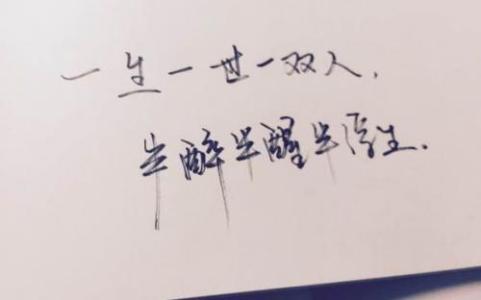 一生一世一双人，
半醉半醒半浮生．